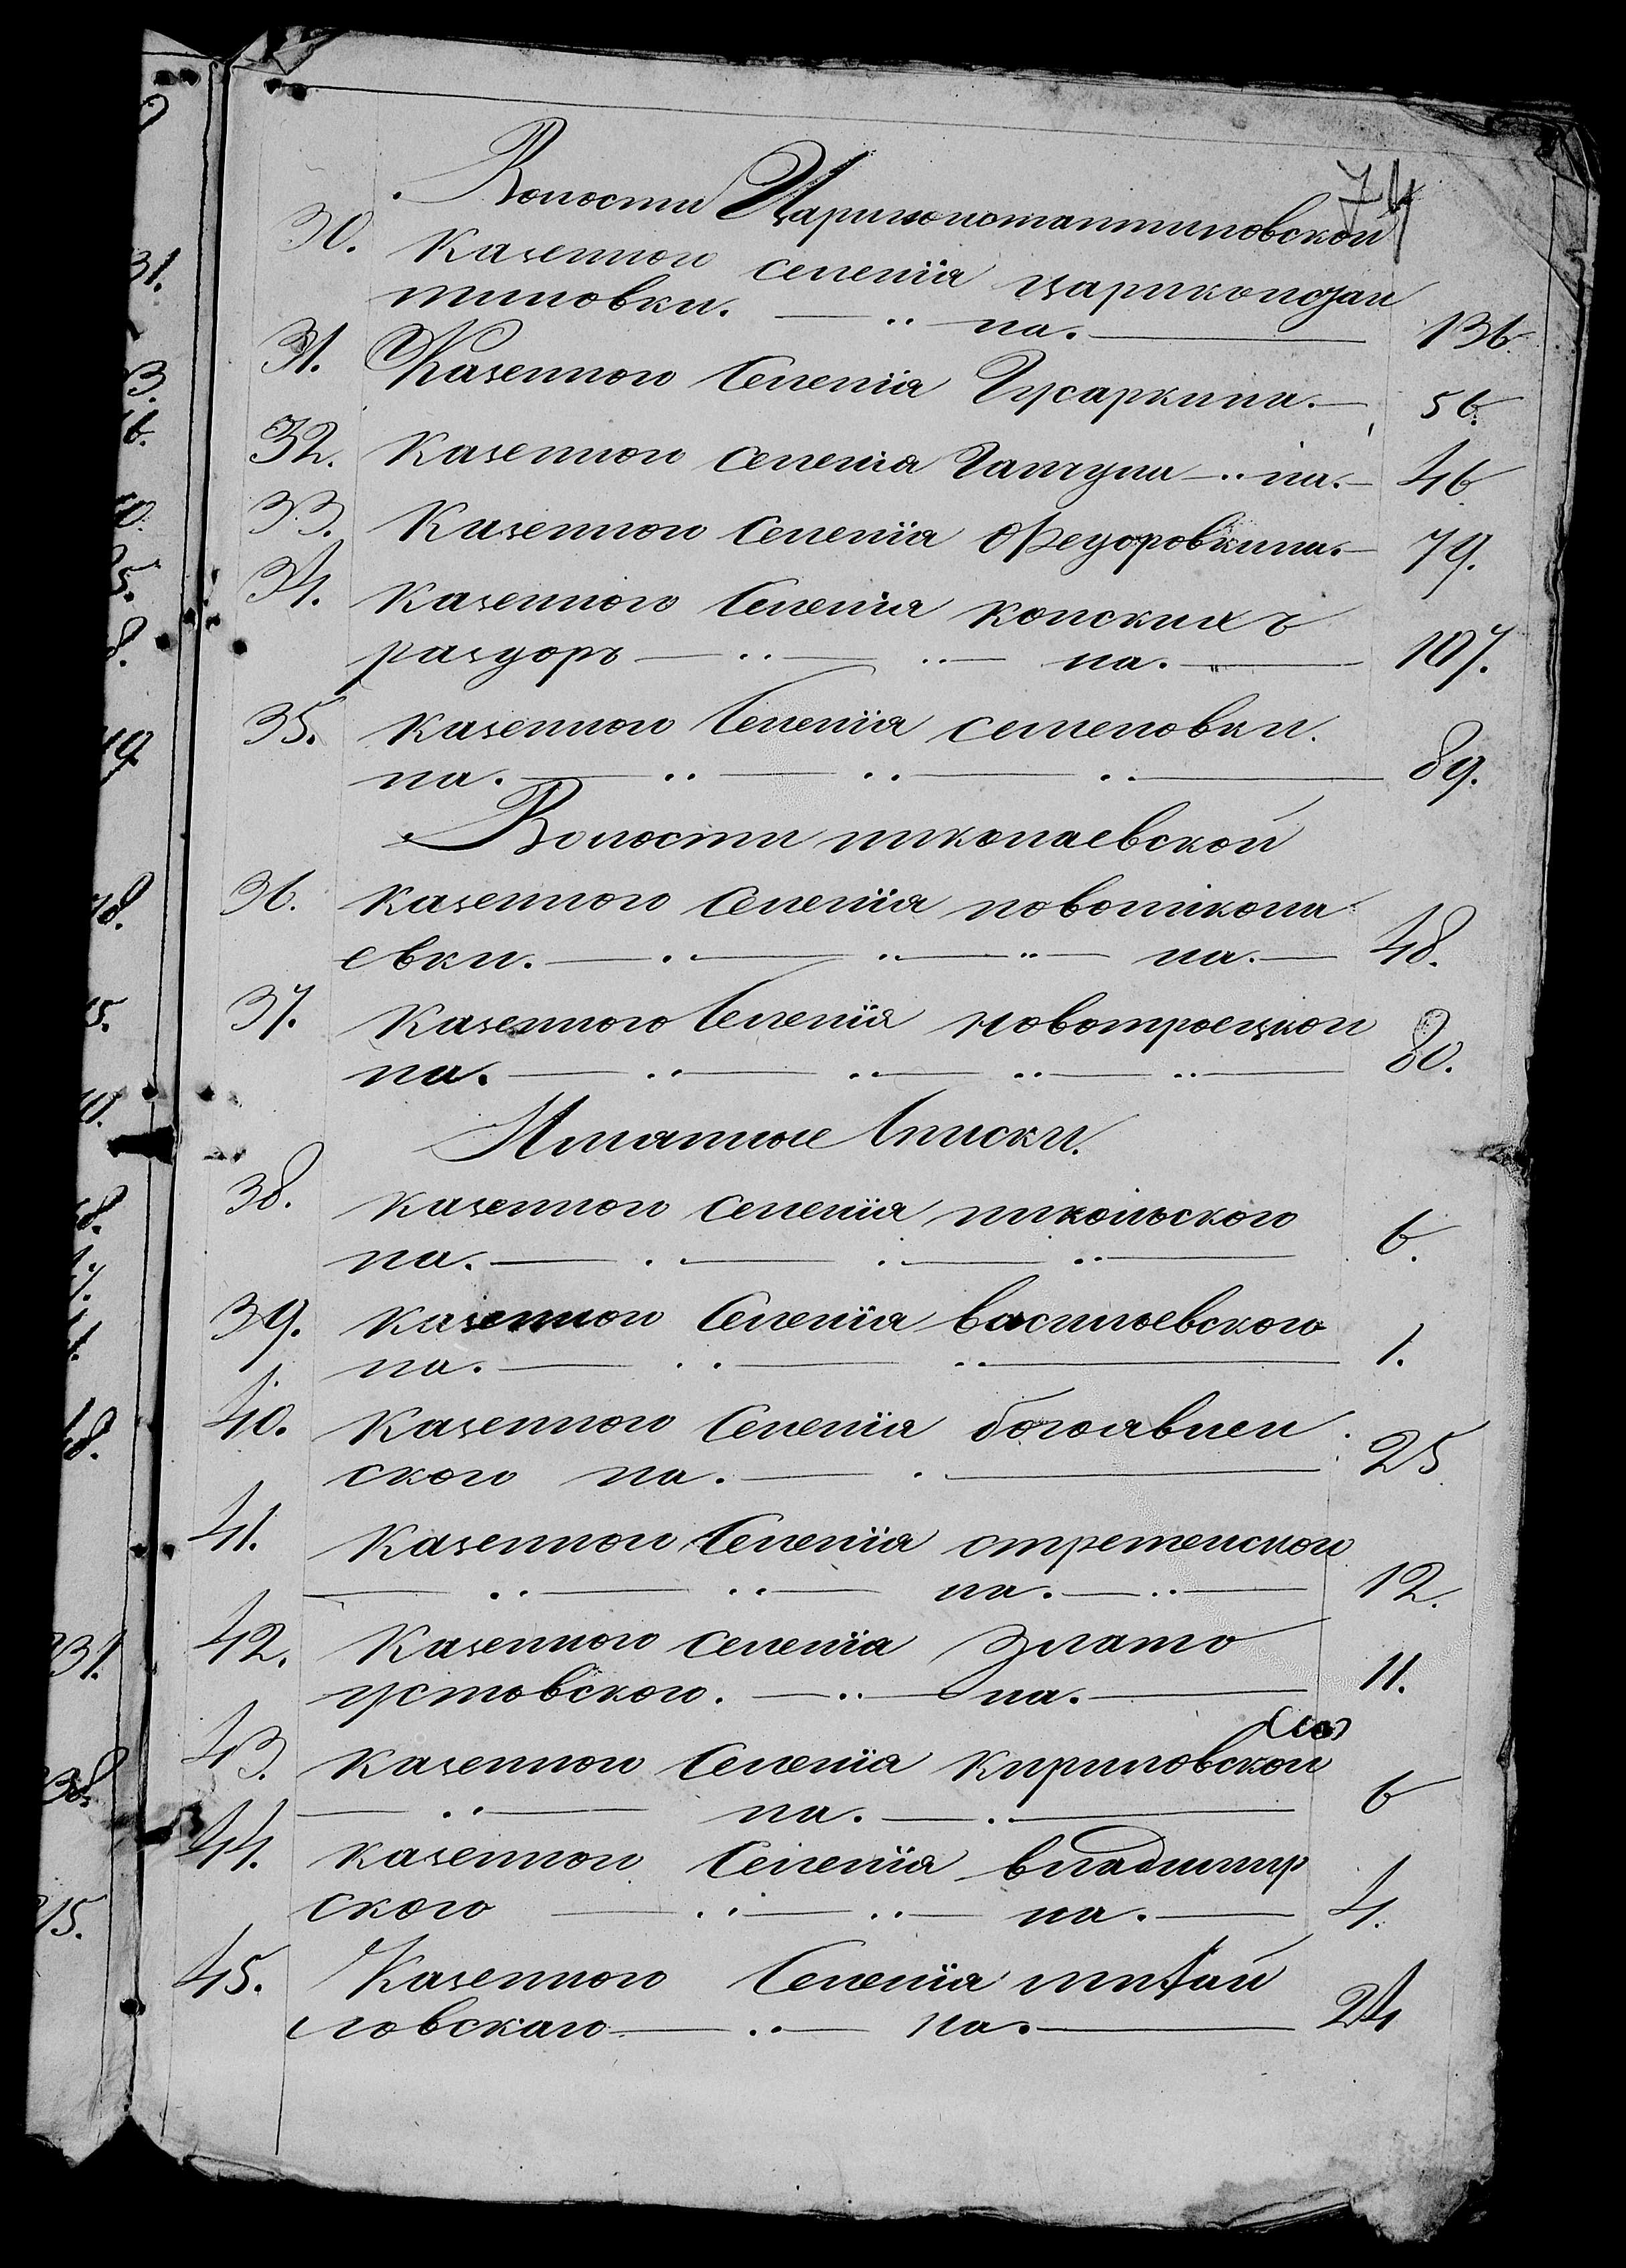 74
Волости Цариконстантиновской
30. Казенного селенія цариконстан
тиновки. на. 136.
31. Казенного Селенія Гусарки на. 56.
32. Казенного селенія Гайчула на. 46
33. Казенного Селенія Федоровки на. 79.
34. Казенного Селенія конскихъ
раздоръ на. 107.
35. казенного Селенія семеновки.
на. 89.
Волости николаевской
36. казенного Селенія новоникола
евки. на. 48.
37. Казенного Селенія новотроецкого
на. 80.
Имянные Списки.
38. казенного селенія никольского
на. 6.
39. казенного Селенія васильевского
на. 1.
40. Казенного Селенія богоявлен
ского на. 25
41. Казенного Селенія стретенского
на. 12.
42. Казенного селенія Злато
устовского. на. 11.
43. казенного Селенія кириловского
на. 6
44. казенного Селенія владимир
ского на. 4.
45. Казенного Селенія михай
ловскаго на. 24